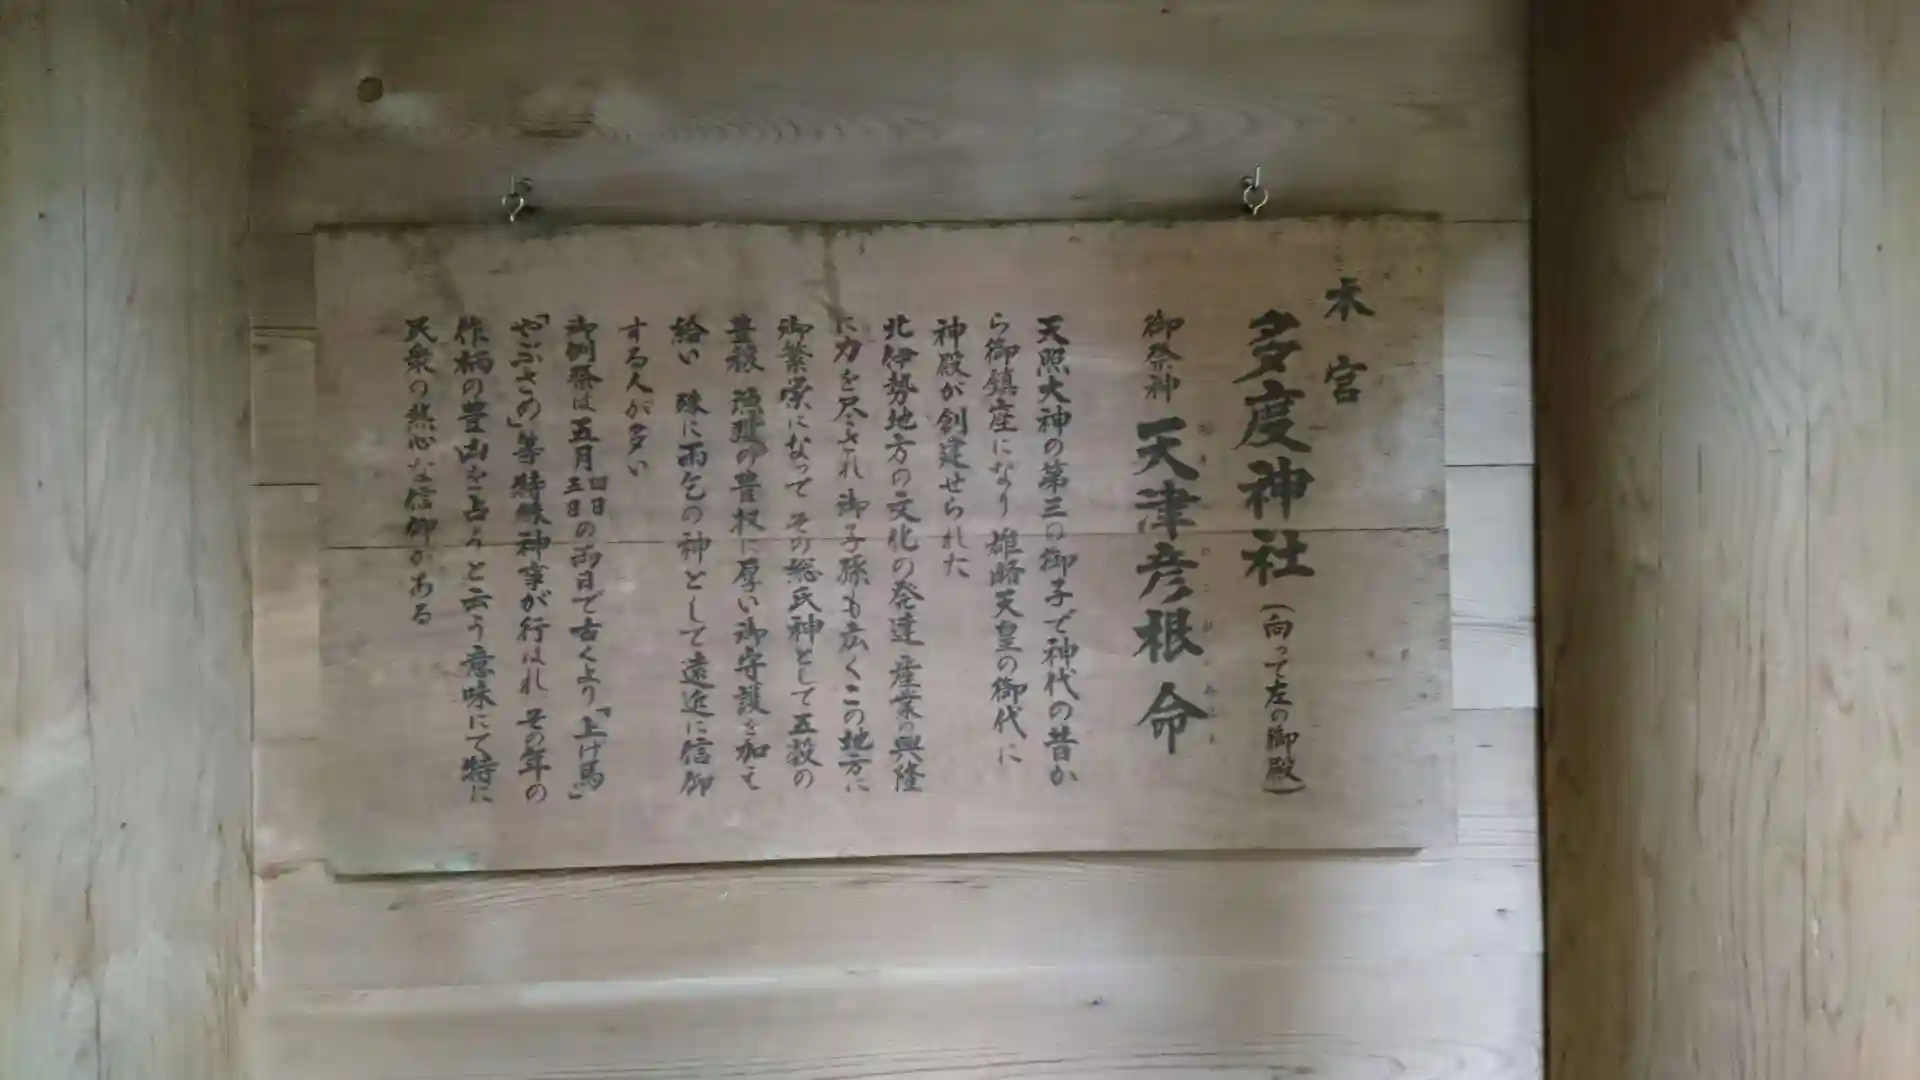 本宮
多度神社(向って左の御殿)
御祭神 天津彦根命
天照大神の第三の御子で神代の昔か
ら御鎮座になり 雄略天皇の御代に
神殿が創建せられた
北伊勢地方の文化の発達 産業の興隆
に力を尽され 御子孫も広くこの地方に
御繁栄になって その総氏神として 五穀の
豊穣 漁 の豊 に厚い御守護を加え
給い 殊に雨乞の神として遠近に信仰
する人が多い
御例祭は五月四日五日の両日で古くより「上げ馬」
「やぶさめ」等特殊神事が行はれ その年の
作柄の豊凶を占うと云う意味にて特に
民衆の熱心な信仰がある